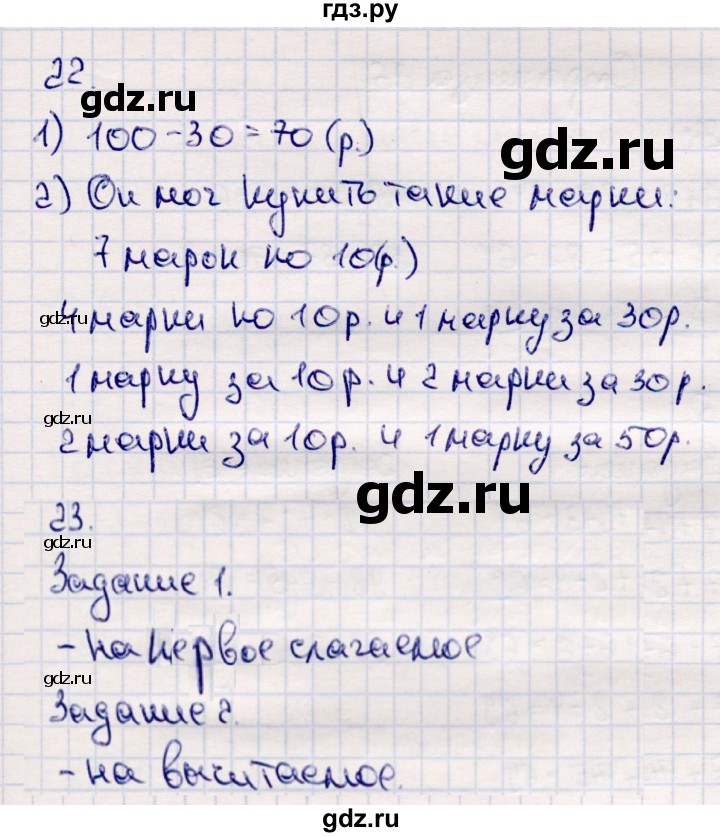 гдз.ру
22.
gdz.ru
1) 100-30=70 (р.)
gdz.ru
2) Он мог купить такие марки:
7 марок по 10(р.)
gdz.ru
4 марки по 10р. и 1 марку за 30р.
1 марку за 10р. и 2 марки за 30р.
gdz.ru
2 марки за 10р. и 1 марку за 50р.
gdz.ru
23.
gdz.ru
Задание 1.
- на первое слагаемое
gdz.ru
Задание 2.
- на вычитаемое.
gdz.ru